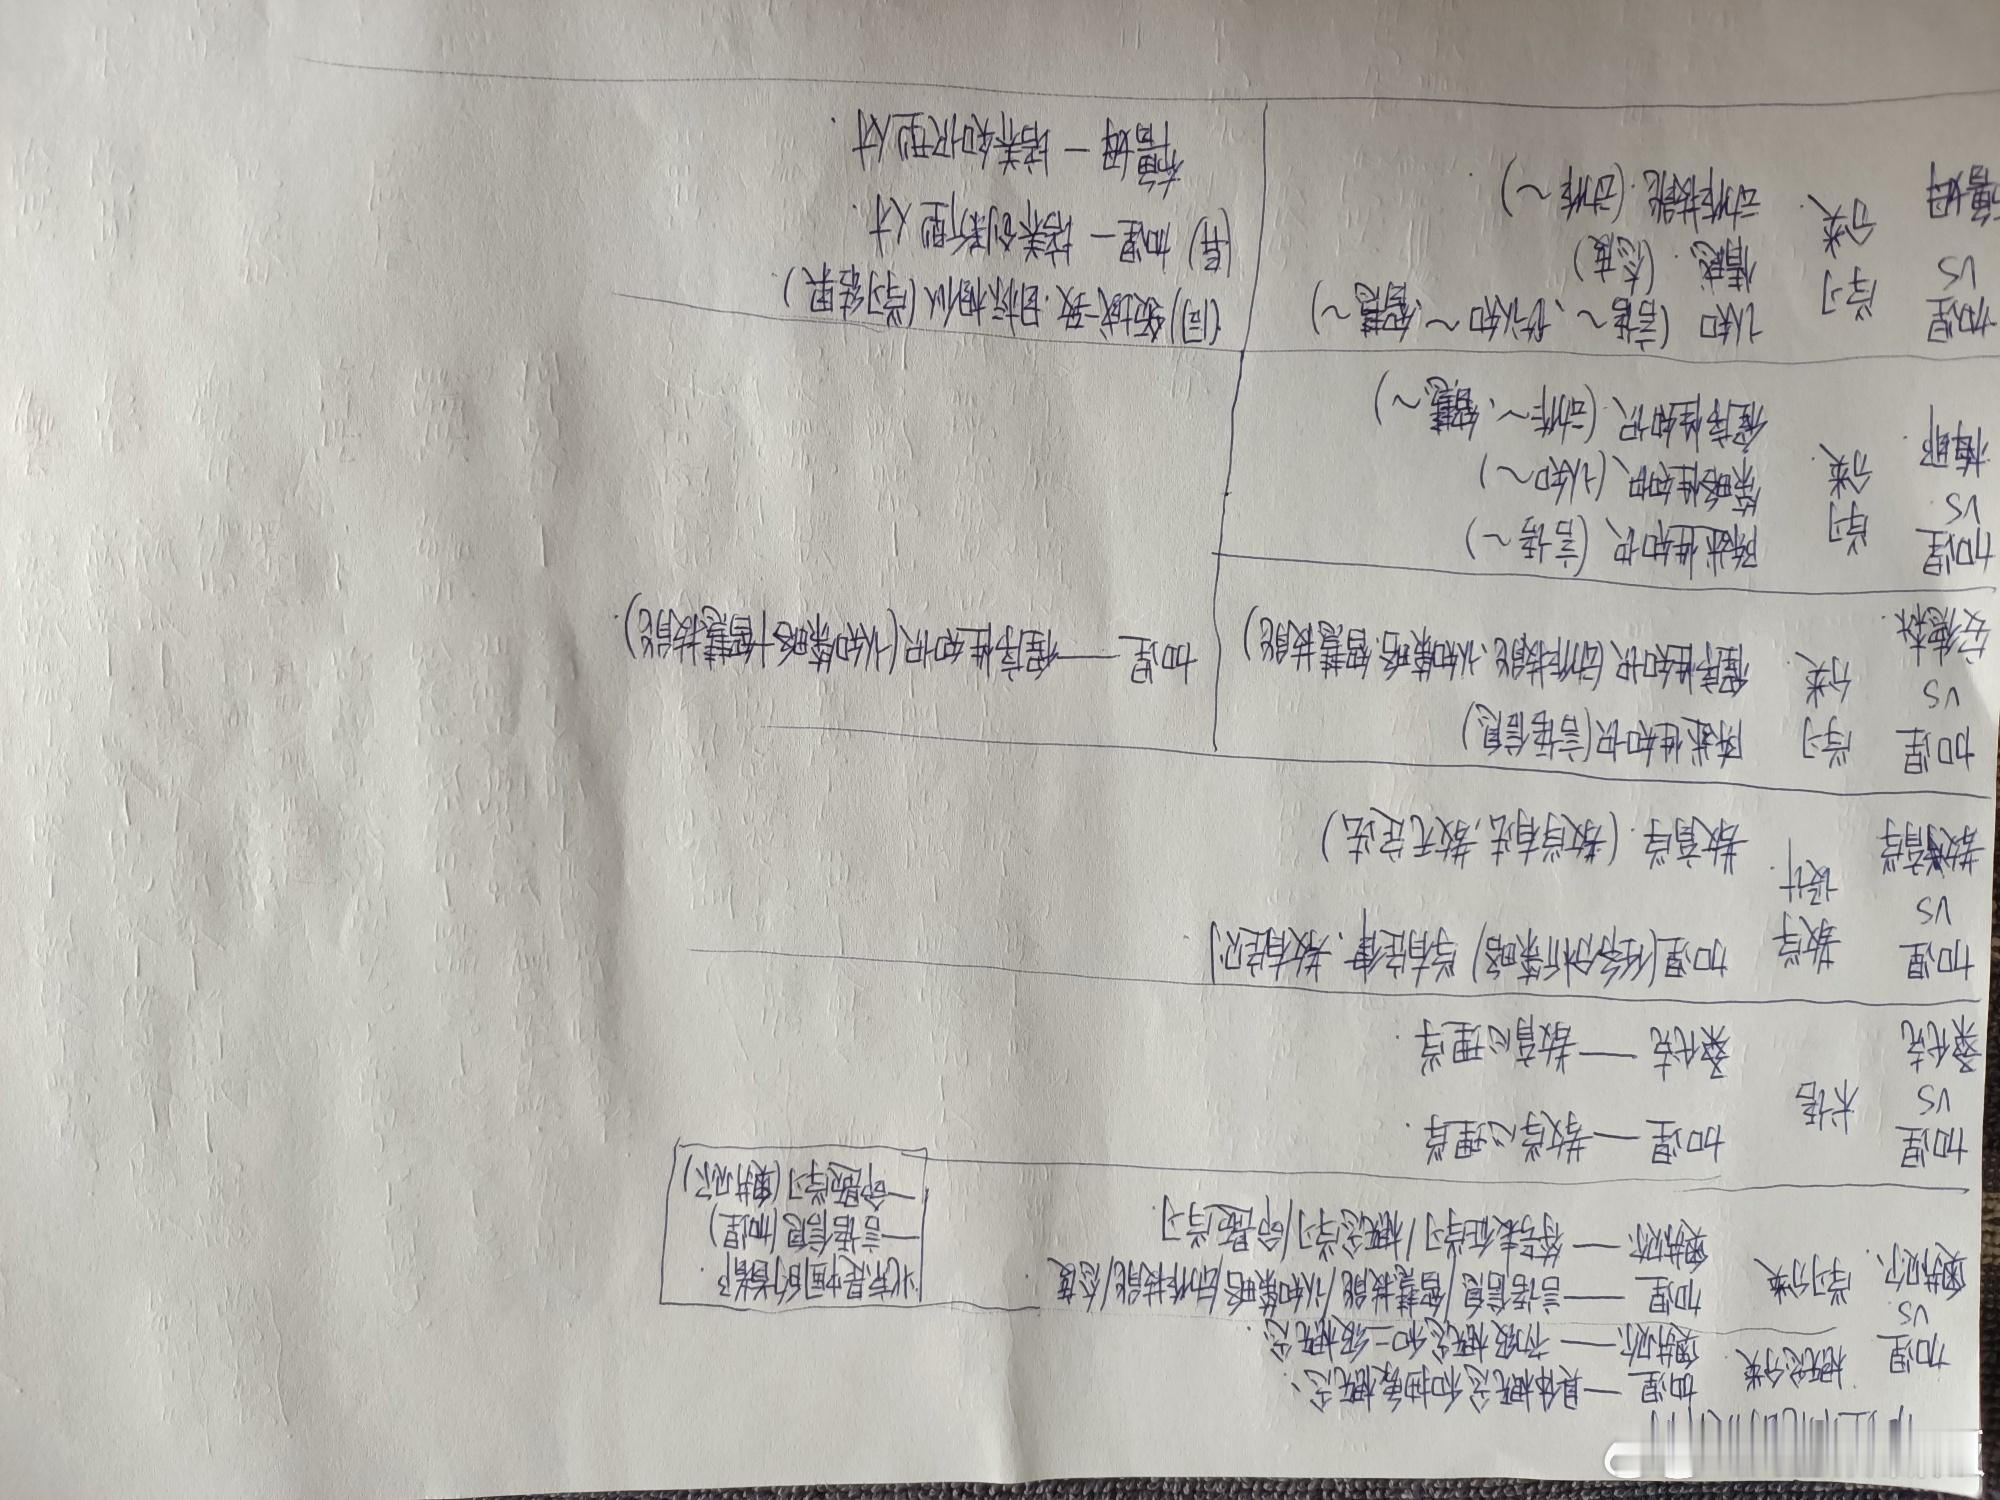 加涅
VS
奥苏贝尔
概念分类
加涅——具体概念和抽象概念、
奥苏贝尔——初级概念和二级概念.
学习分类
加涅——言语信息/智慧技能/认知策略/动作技能/态度
奥苏贝尔——符号表征学习/概念学习/命题学习.
北京是中国的首都.
——言语信息(加涅)
——命题学习(奥苏贝尔)
加涅
VS
桑代克
术语
加涅——教学心理学.
桑代克——教育心理学.
加涅
VS
教育学
教学
设计
加涅(任务分析策略) 学有定律. 教有定则.
教育学.(教学有法,教无定法)
加涅
VS
安德森.
学习
分类
陈述性知识(言语信息)
程序性知识(动作技能.认知策略.智慧技能)
加涅——程序性知识(认知策略+智慧技能).
加涅
VS
梅耶.
学习
分类.
陈述性知识(言语~)
策略性知识(认知~)
程序性知识.(动作~、智慧~)
加涅
VS
布卢姆
学习
分类.
认知(言语~、认知~、智慧~)
情感.(态度)
动作技能.(动作~)
(同)领域一致.目标相似(学习结果)
(异)加涅—培养创新型人才.
布卢姆—培养知识型人才.